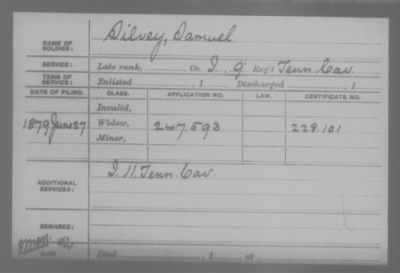 Silvey, Samuel
NAME OF SOLDIER:
SERVICE: Late rank, Co. I, 9 Reg't Tenn Cav.
TERM OF SERVICE: Enlisted , 1 Discharged , 1
DATE OF FILING. CLASS. APPLICATION NO. LAW. CERTIFICATE NO.
Invalid,
1879 June 27 Widow, 247.593 228.101
Minor,
I. 11. Tenn. Cav.
ADDITIONAL SERVICES:
REMARKS:
Died , 1 , at